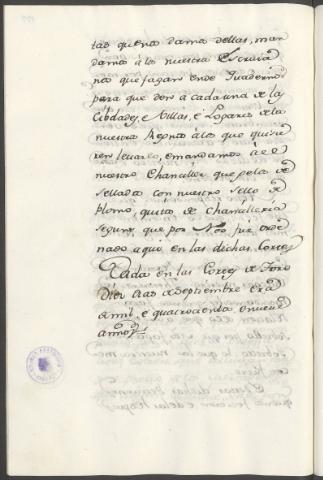 tas quenta damos dellas, man
damos á los nuestros Escriva
nos que fagan ende Quaderno
para que den a cada una de las
Cibdades, e Villas, e Logares de los
nuestros Regnos a los que quisie
ren levarlo, e mandamos á el
nuestro Chanciller que gelo dé
sellado con nuestro sello de
plomo, quitos de chancilleria
segunt que por Nos fue orde
nado aqui en las dichas Cortes
Dada en las Cortes de Toro
Diez dias de Septiembre Era
de mil, e quatrocientos e nueve
años